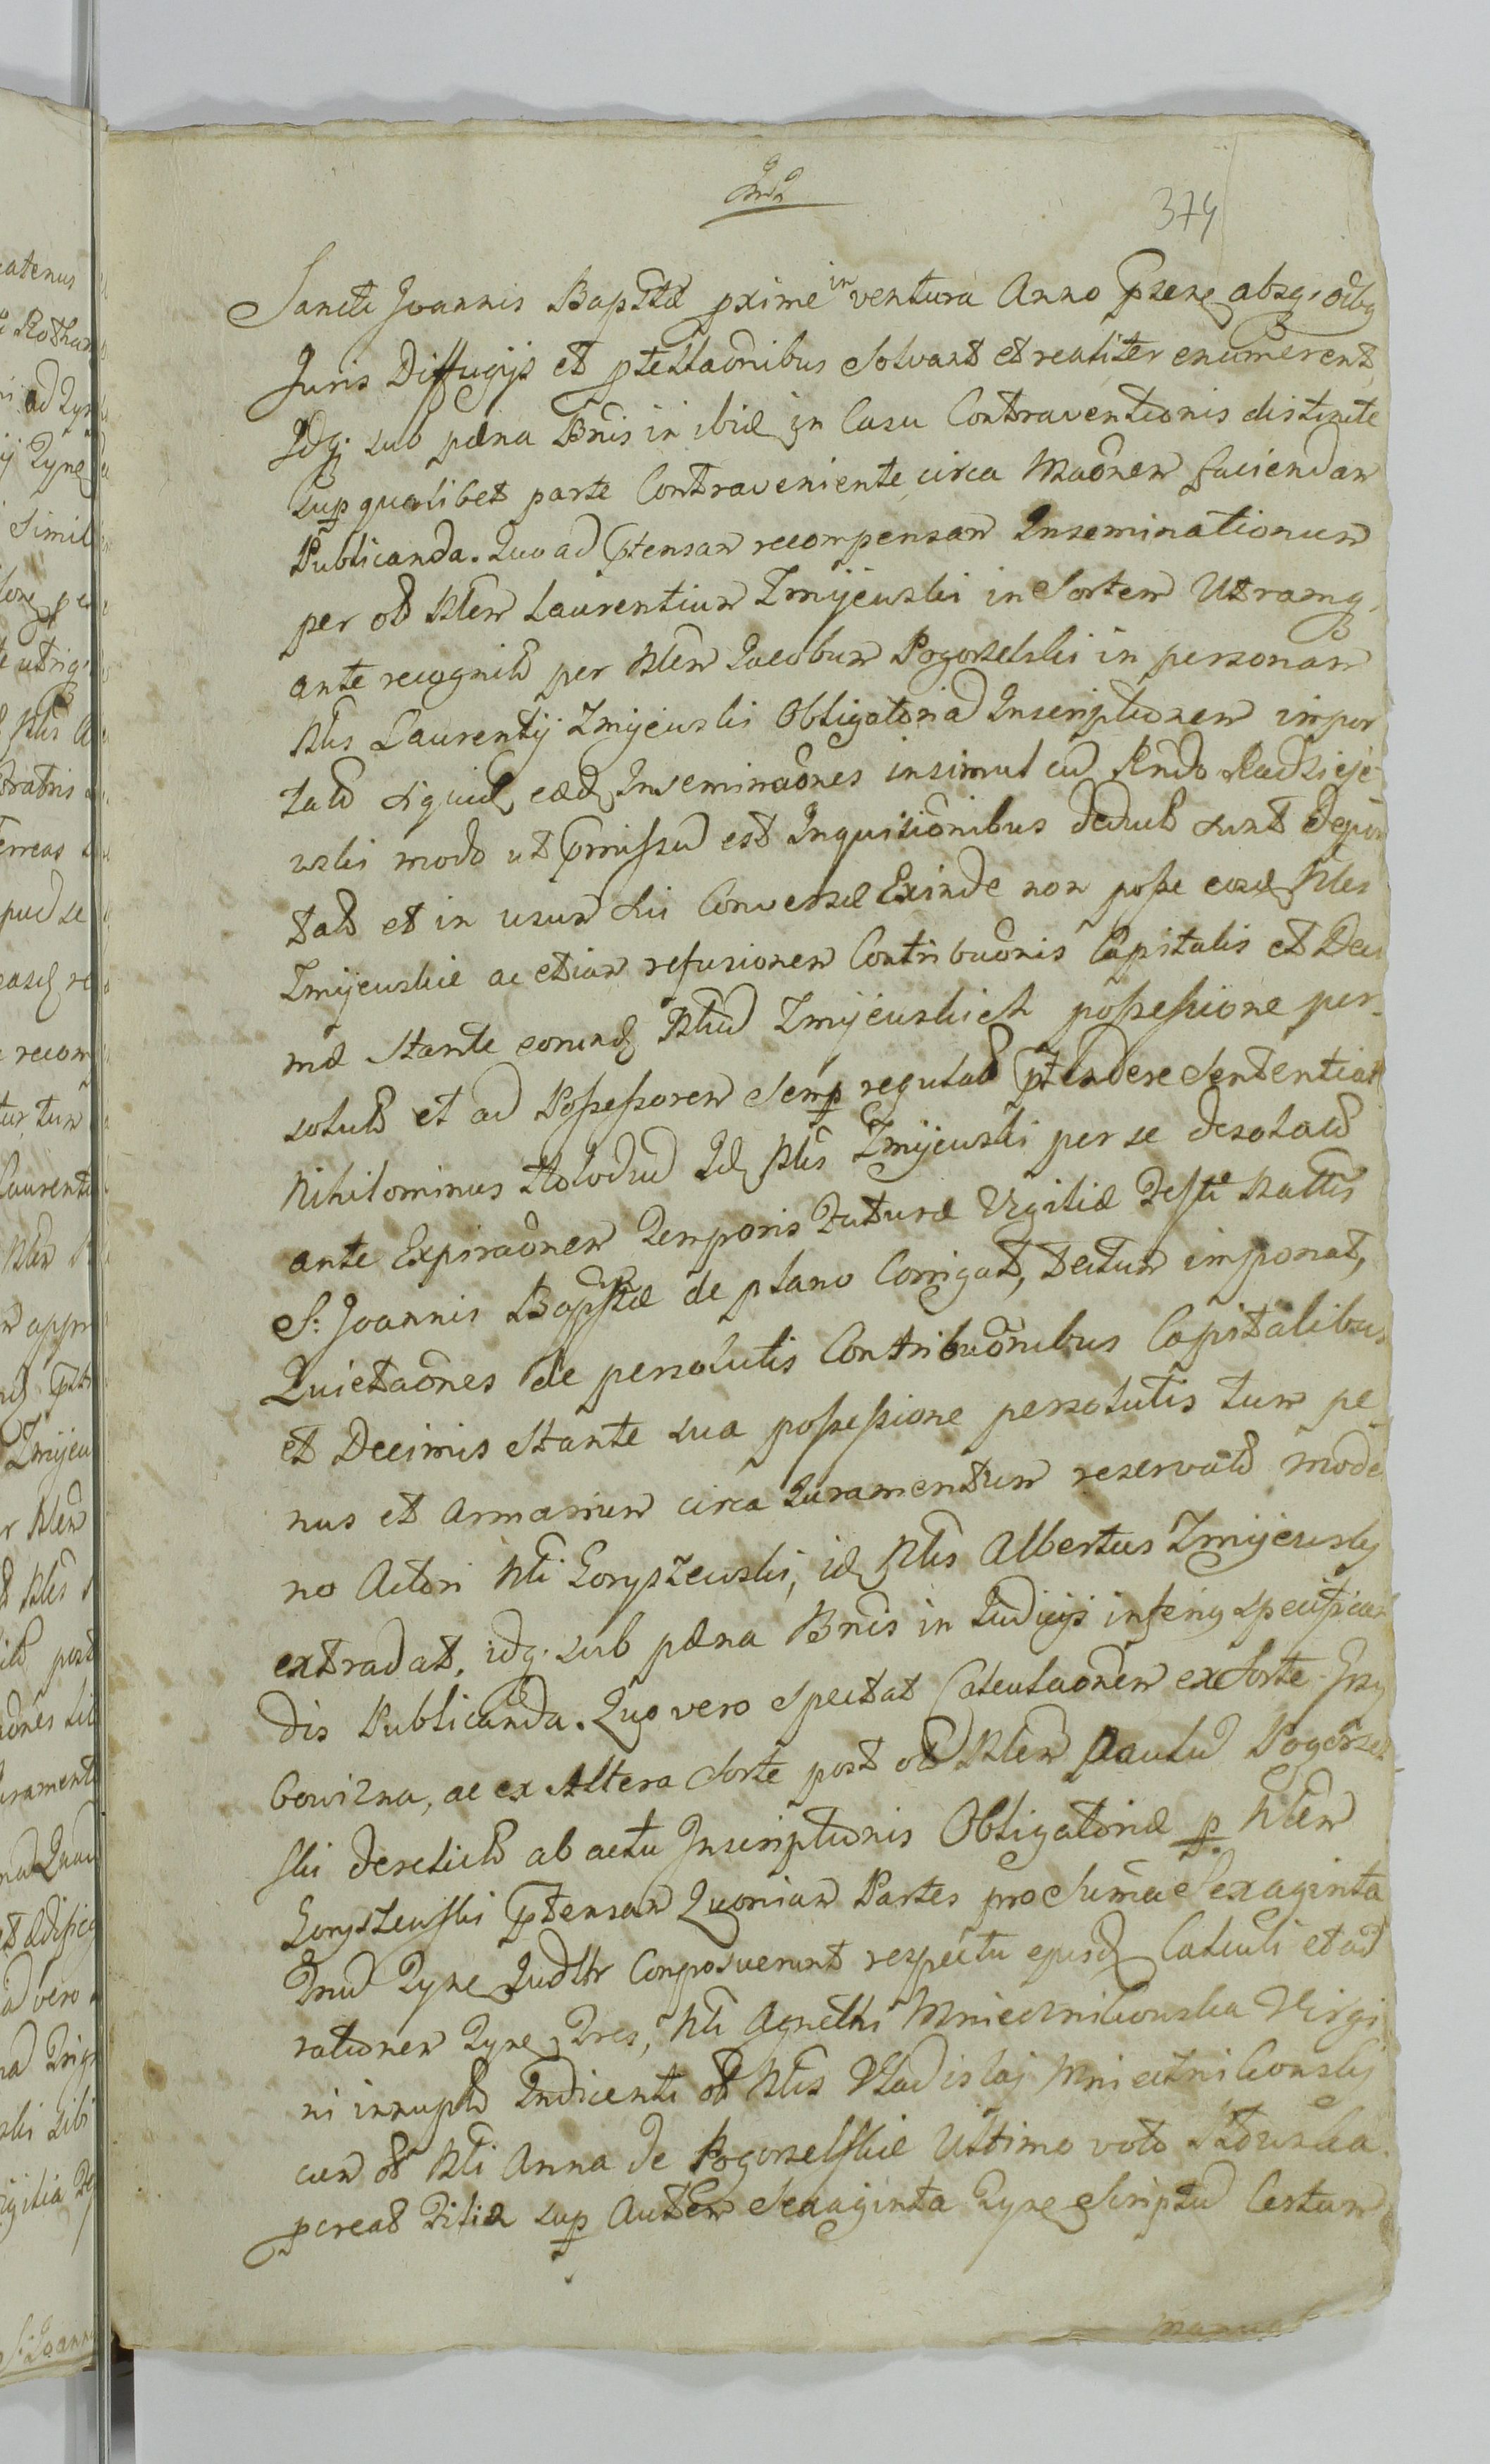 374
Sancti Joannis Baptistæ pxime in ventura Anno
Juris Diffugijs et ptestaõnibus solvant et realiter enumerent,
Idq; sub pæna Bnis in ibid in Casu Contraventionis distincte
sup qualibet parte Contraveniente circa Maõnem faciendam
Publicanda. Quo ad ptensam recompensam Inseminationum
per oD Nlem Laurentium Zmijewski in Sortem Utramq;
ante recognitD per Nlem Jacobum Pogorzelski in personam
Nlis Laurentij Zmijewski Obligatoria Inscriptionem impor
tatD siquid eæd Inseminaõnes insimul cũ Rndo Radzieje
wski modo ut pmissũ est Inquisiõnibus deduct sunt depor
tatD et in usum sui Conversæ Exinde non posse eosd Nles
Zmijewskie ac etiam refusionem Contribuõnis Capitalis et Deci
mæ stante eorund Nliũ Zmijewskich possessione per
solutD et ad Possessorem semp regulatD ptendere Sententiat
Nihilominus Id Nlis Zmijewski per se desolatD
ante Expiraõnem Temporis futuræ Vigiliæ Festi Nattis
S: Joannis Baptistæ de plano Corrigat, tectum imponat,
Quietaõnes de persolutis Contribuõnibus Capitalibus
et Decimis stante sua possessione persolutis tum pe
nus et Armarium circa Juramentum reservatD moder
no Actori Nli Goryszewski, id Nlis Albertus Zmijewsky
extradat, idq; sub pæna Bnis in Judicijs inferius specifican
dis Publicanda. Quo vero spectat Calculaõnem ex Sorte Grzy
bowizna, ac ex Altera Sorte post oD Nlem Paulũ Pogorzel
ski derelictD ab actu Inscriptionis Obligatoriæ p Nlem
Goryszewski ptensam Quoniam Partes pro Suma Sexaginta
Tynf Judltr Composuerunt respectu ejusd Calculi et ad
rationem Tynf Tres, Nli Agnethi Mniecznikowska Virgi
ni innuptD Indicenti oD Nlis Vladislaj Mniecznikowskij
cum oD Nli Anna de Pogorzelskie Ultimo voto
pcreatD Filiæ sup Autem Sexaginta Tynf Scriptũ Certum